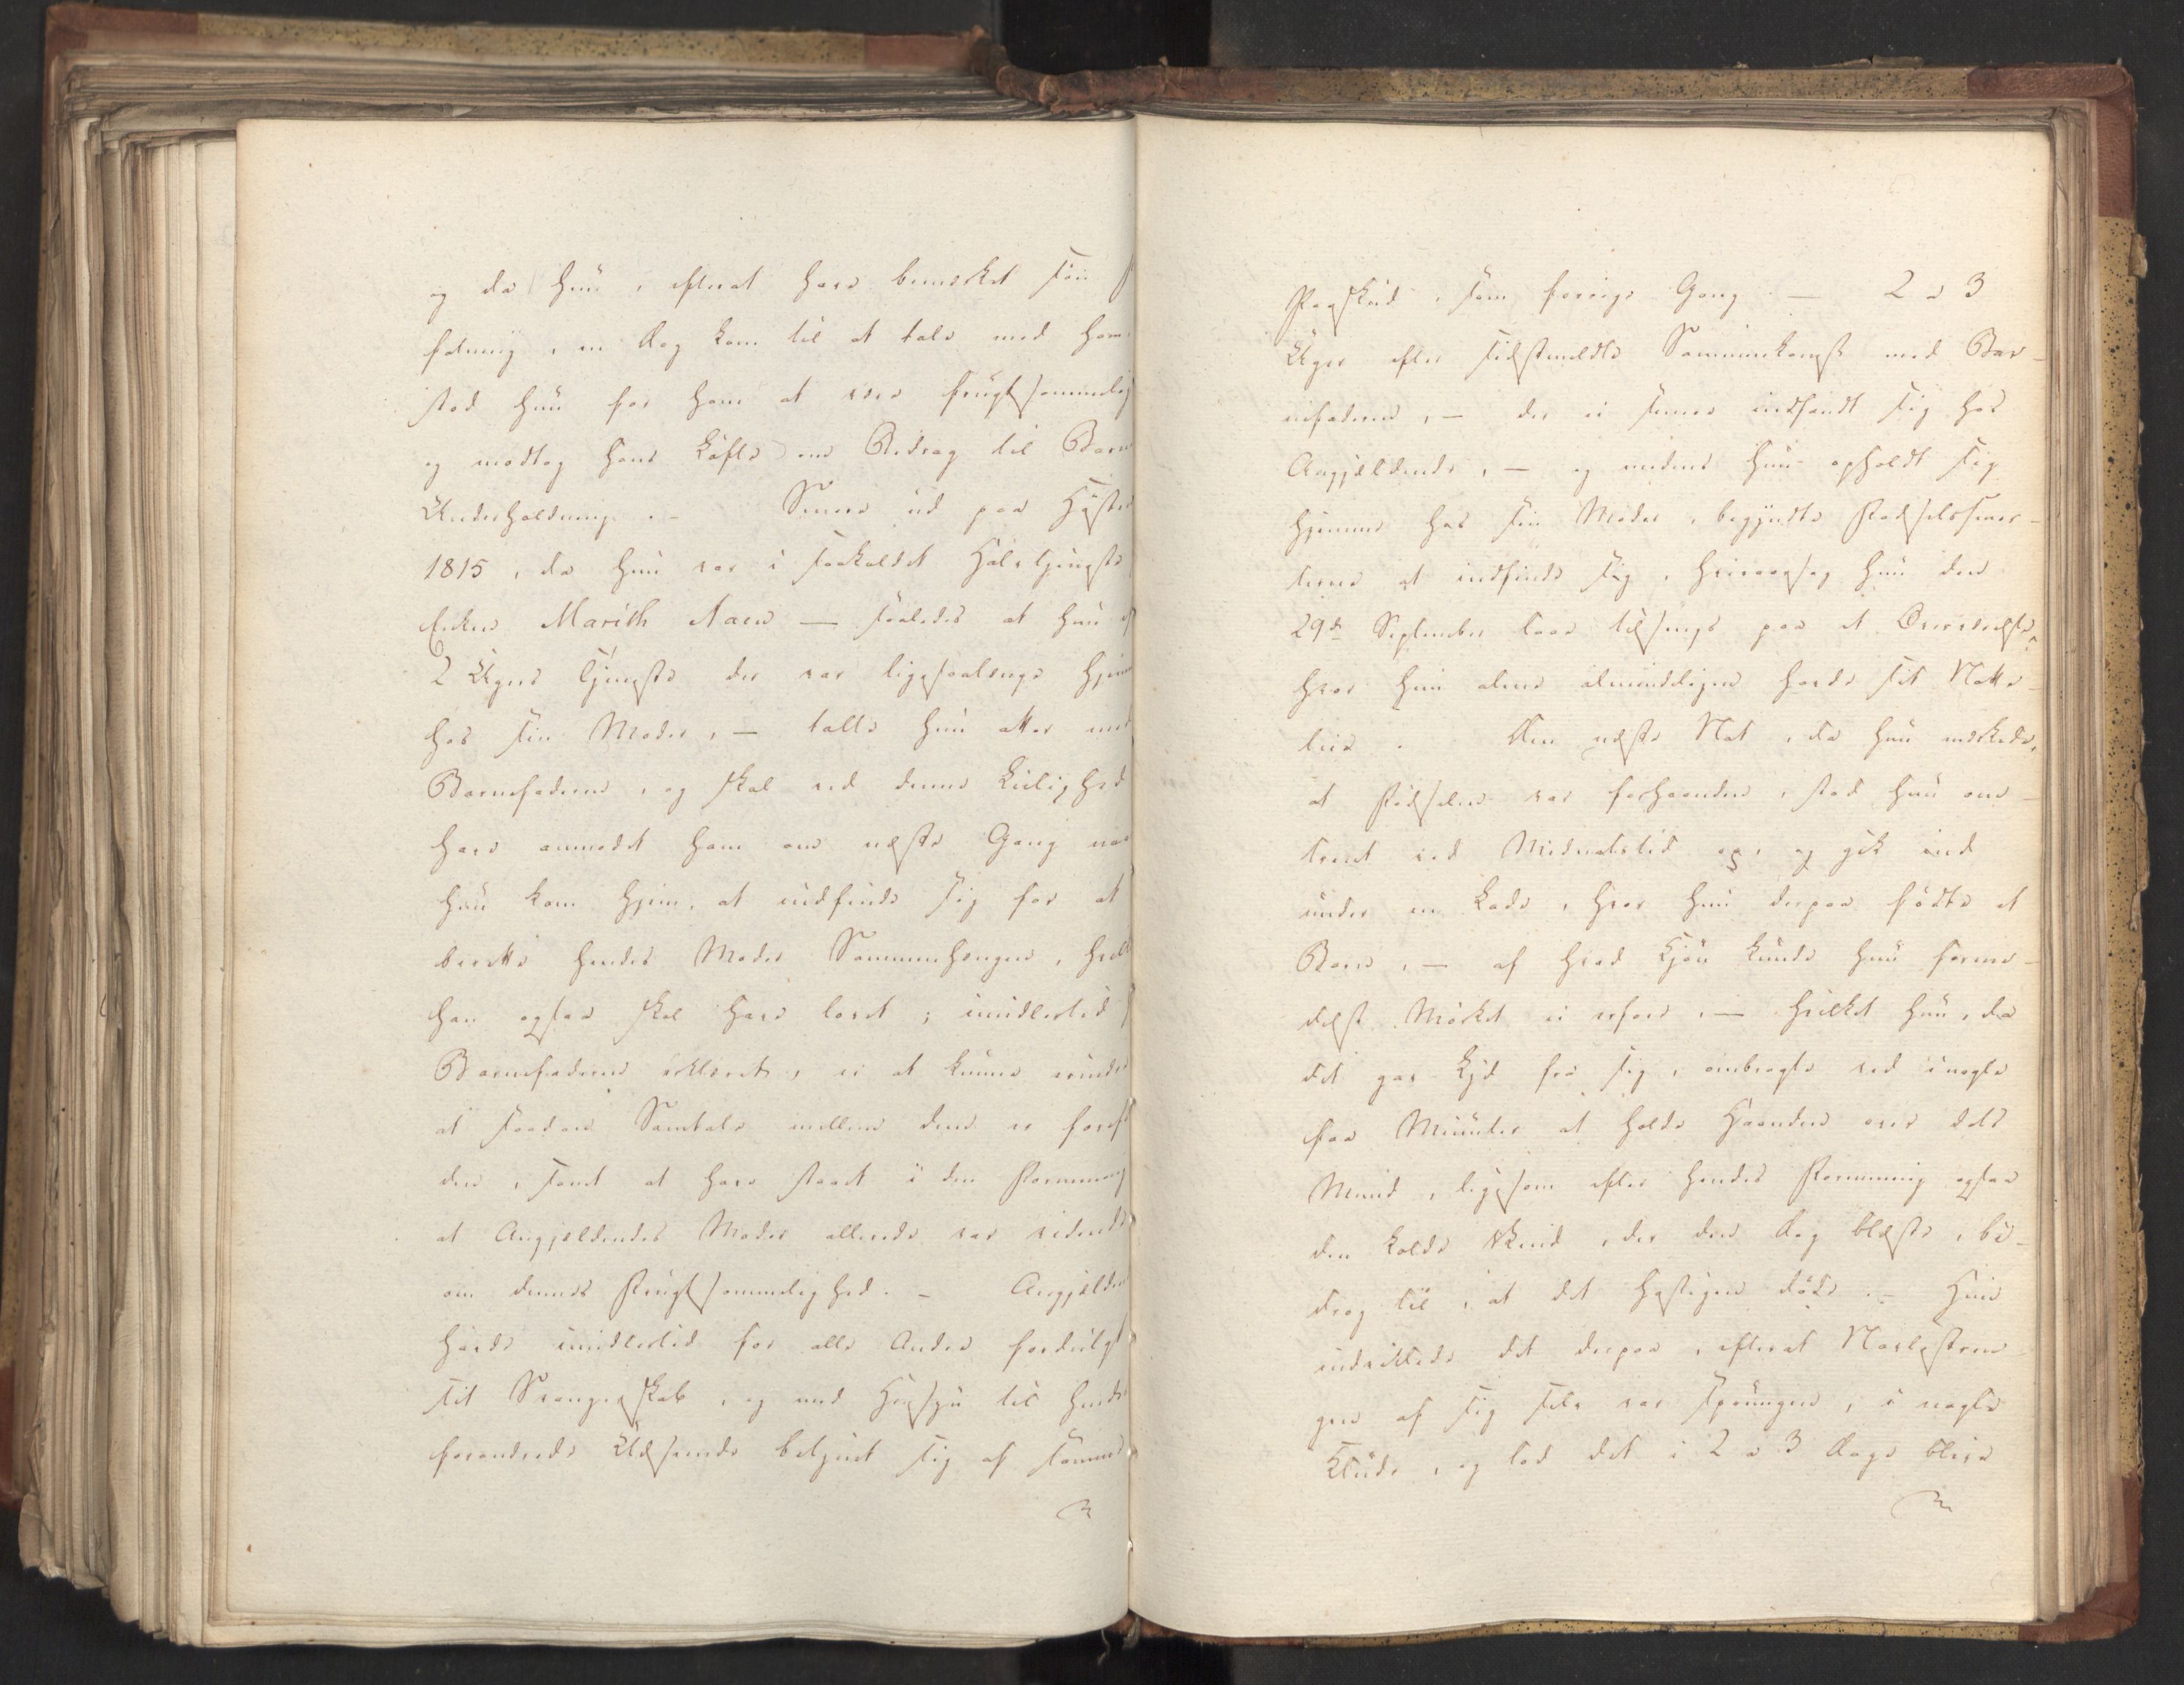 og da hun, efterat have bemærket sin
fatning, en Dag kom til at tale med ham
stod hun for ham at være frugtsommelig
og modtog hans Løfte om Bidrag til Barn
Underholdning. – Senere ud paa Høsten
1815, da hun var i saakaldet Halvtjeneste
Enken Marith Aaen — saaledes at hun
2 Ugers Tjeneste der var ligesaalænge hjem
hos sin Moder, — talte hun atter med
Barnefaderen, og skal ved denne Leilighed
have anmodet ham om næste Gang naa
hun kom hjem, at indfinde sig for at
berette hendes Moder Sammenhængen, hvilk
han ogsaa skal have lovet; imidlertid
Barnefaderen erklæret, ei at kunne erindre
at saadan Samtale mellem dem er foref
den, samt at have staaet i den Formening
at Angjeldendes Moder allerede var vidende
om dennes Frugtsommelighed. – Angjelden
havde imidlertid for alle Andre fordulgt
sit Svangerskab, og med Hensyn til hendes
forandrede Udseende betjent sig af samme
Paaskud, som forrige Gang. — 2 a 3
Uger efter sidstmeldte Sammenkomst med Bar-
nefaderen, — der ei senere indfandt sig hos
Angjeldende, — og medens hun opholdt sig
hjemme hos sin Moder, begyndte Fødselssmer-
terne at indfinde sig, hvisaarsag hun den
29de September laae tilsengs paa et Overværelse,
hvor hun alene almindeligen havde sit Natte-
leie. Den næste Nat, da hun mærkede,
at Fødselen var forhaanden, stod hun om-
trent ved Midnatstid op, og gik ind
under en Lade, hvor hun derpaa fødte et
Barn, — af hvad Kjøn kunde hun forme-
delst Mørket ei erfare, — hvilket hun, da
det gav Lyd fra sig, ombragte ved i nogle
faa Minuter at holde Haanden over dets
Mund, ligesom efter hendes Formening ogsaa
den kolde Vind, der den Dag blæste, bi-
drog til, at det hastigen døde. – Hun
indviklede det derpaa, efterat Navlestren-
gen af sig selv var sprungen, i nogle
Klude, og lod det i 2 a 3 Dage blive